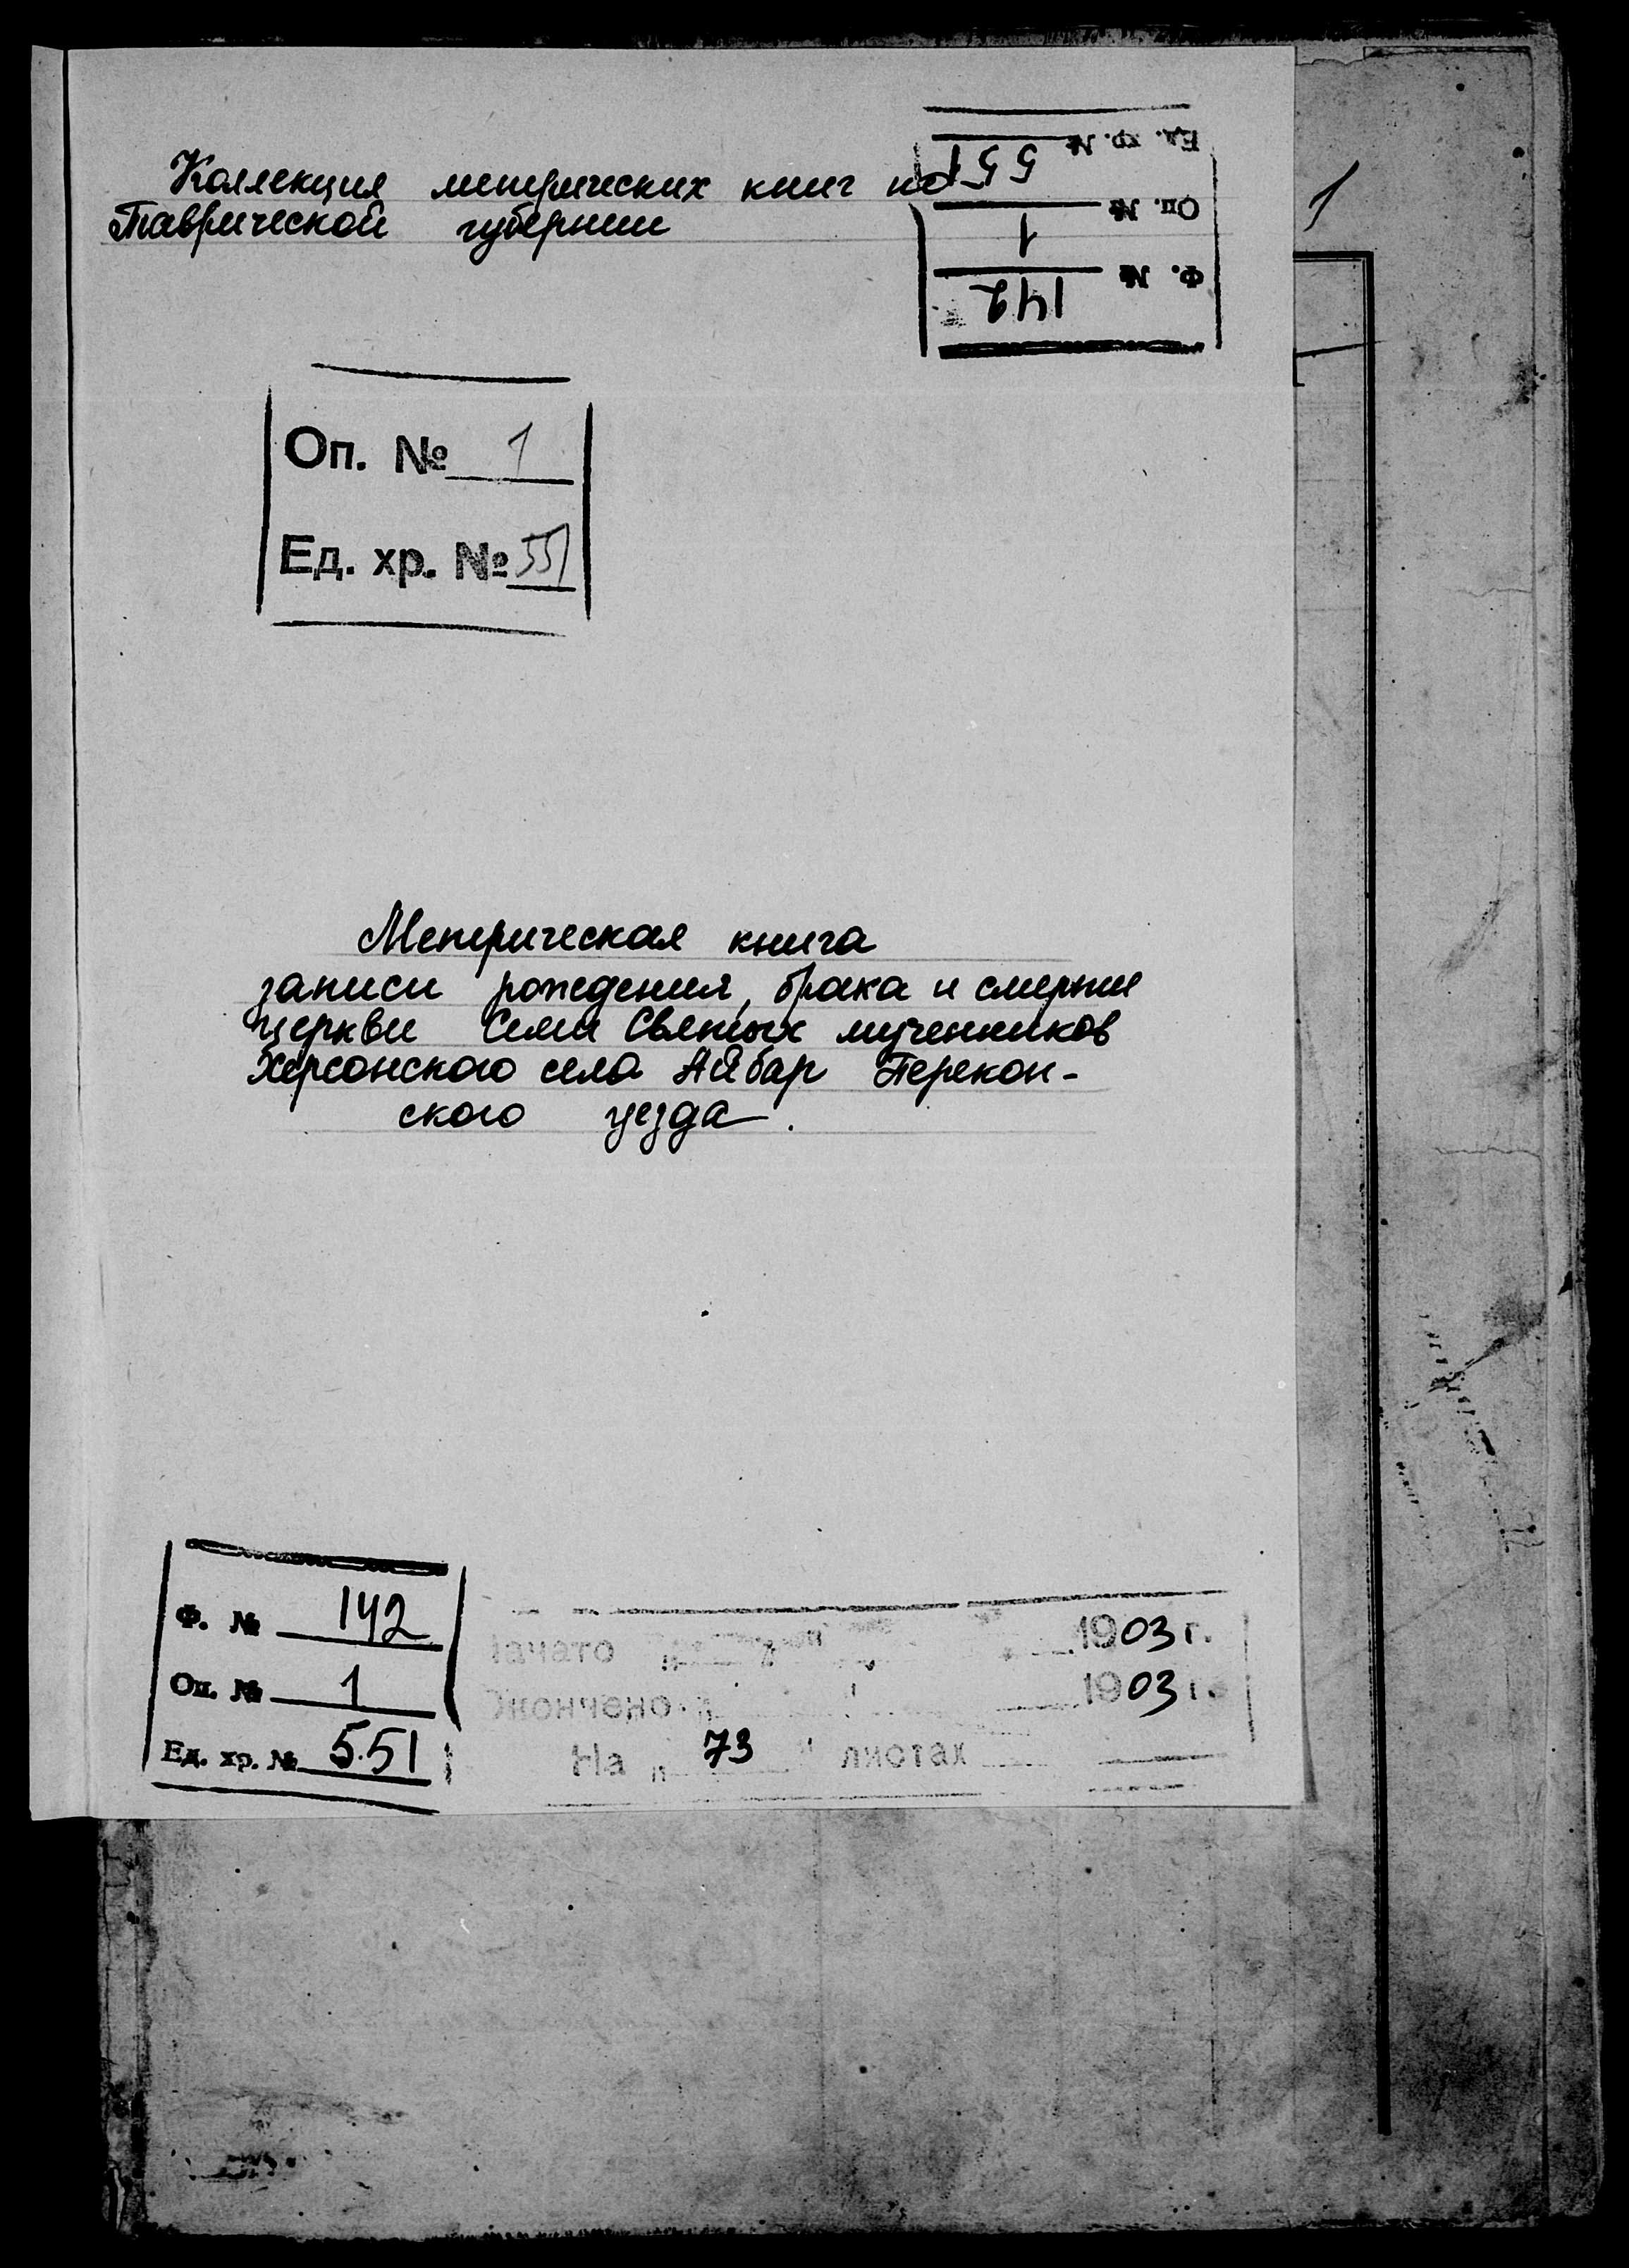 Коллекция метрических книг по
Таврической губернии
Ед. хр. № 551
Оп. № 1
Ф. № 142
1
Оп. № 1
Ед. хр. № 551
Метрическая книга
записи рождения, брака и смерти
церкви Семи Святых мученников
Херсонского села Айбар Перекоп-
ского уезда.
Ф. № 142
Оп. № 1
Ед. хр. № 551
Начато 1903 г.
Окончено 1903 г.
На 73 листах